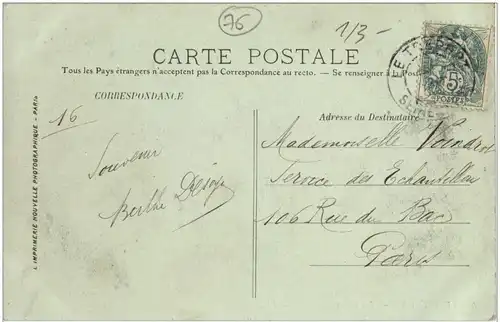 76
1/3-
CARTE POSTALE
Tous les Pays étrangers n'acceptent pas la Correspondance au recto. — Se renseigner à la Poste
CORRESPONDANCE
16
Souvenir
Berthe
Adresse du Destinataire
Mademoiselle Voindrot
Service des Echantillons
106 Rue du Bac
Paris
L'IMPRIMERIE NOUVELLE PHOTOGRAPHIQUE - PARIS
5c
POSTES